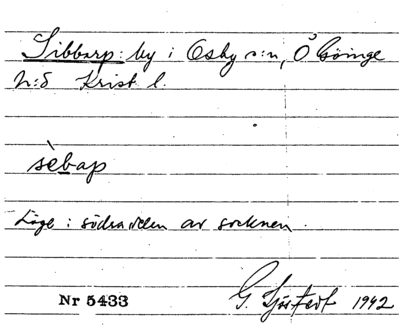 Sibbarp: by i Osby s:n, Ö Göinge
h:d Krist l.
sèbap
Läge i södra delen av socknen.
Nr 5433
G. Sjöstedt 1942